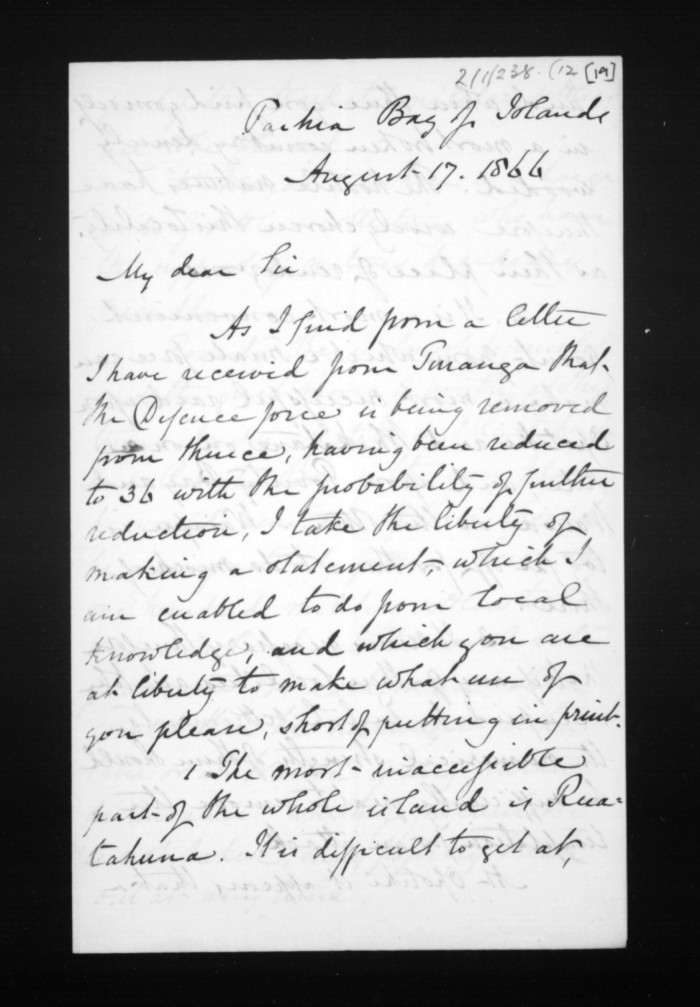 2/1/238. (12 [19]
Paihia Bay of Islands
August 17. 1866
My dear Sir
As I find from a letter
I have received from Turanga that
the Defence force is being removed
from thence, having been reduced
to 36 with the probability of further
reduction, I take the liberty of
making a statement, which I
am enabled to do from local
knowledge, and which you are
at liberty to make what use of
you please, short of putting in print.
1 The most inaccessible
part of the whole island is Rua-
tahuna. It is difficult to get at,